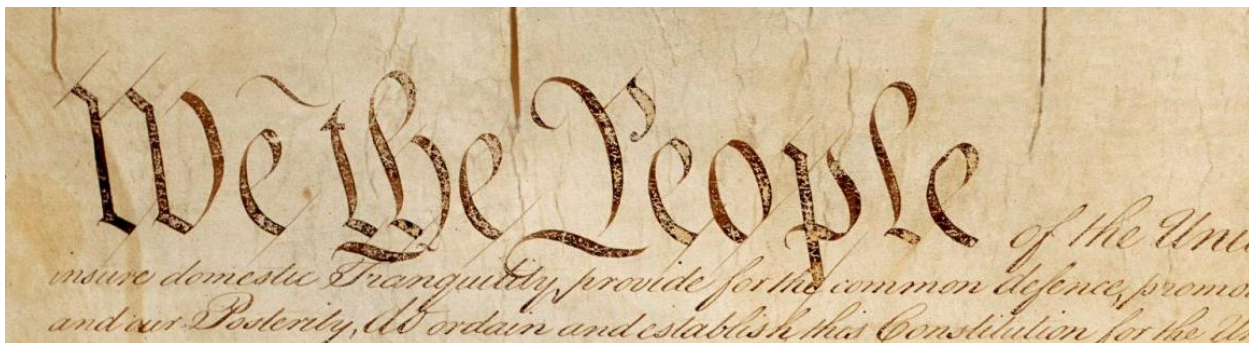 We the People of the Uni
insure domestic Tranquility, provide for the common defence, promo
and our Posterity, do ordain and establish this Constitution for the Un